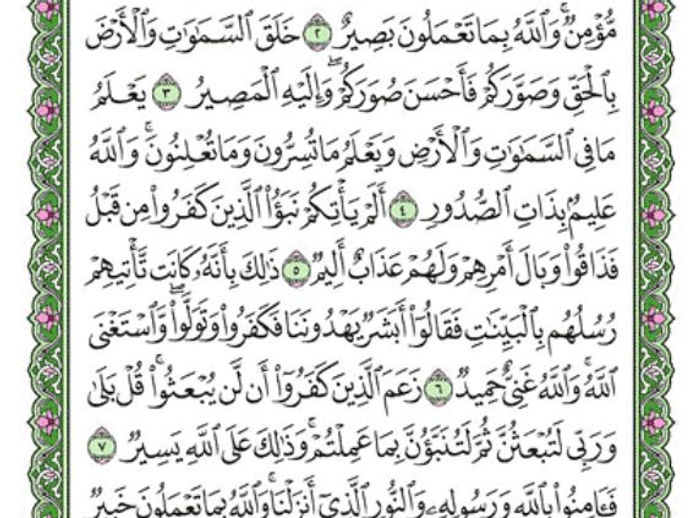 مُّؤْمِنٌ ۚ وَٱللَّهُ بِمَا تَعْمَلُونَ بَصِيرٌ ٢ خَلَقَ ٱلسَّمَٰوَٰتِ وَٱلْأَرْضَ
بِٱلْحَقِّ وَصَوَّرَكُمْ فَأَحْسَنَ صُوَرَكُمْ ۖ وَإِلَيْهِ ٱلْمَصِيرُ ٣ يَعْلَمُ
مَا فِى ٱلسَّمَٰوَٰتِ وَٱلْأَرْضِ وَيَعْلَمُ مَا تُسِرُّونَ وَمَا تُعْلِنُونَ ۚ وَٱللَّهُ
عَلِيمٌۢ بِذَاتِ ٱلصُّدُورِ ٤ أَلَمْ يَأْتِكُمْ نَبَؤُا۟ ٱلَّذِينَ كَفَرُوا۟ مِن قَبْلُ
فَذَاقُوا۟ وَبَالَ أَمْرِهِمْ وَلَهُمْ عَذَابٌ أَلِيمٌ ٥ ذَٰلِكَ بِأَنَّهُۥ كَانَت تَّأْتِيهِمْ
رُسُلُهُم بِٱلْبَيِّنَٰتِ فَقَالُوٓا۟ أَبَشَرٌ يَهْدُونَنَا فَكَفَرُوا۟ وَتَوَلَّوا۟ ۖ وَّٱسْتَغْنَى
ٱللَّهُ ۚ وَٱللَّهُ غَنِىٌّ حَمِيدٌ ٦ زَعَمَ ٱلَّذِينَ كَفَرُوٓا۟ أَن لَّن يُبْعَثُوا۟ ۚ قُلْ بَلَىٰ
وَرَبِّى لَتُبْعَثُنَّ ثُمَّ لَتُنَبَّؤُنَّ بِمَا عَمِلْتُمْ ۚ وَذَٰلِكَ عَلَى ٱللَّهِ يَسِيرٌ ٧
فَـَٔامِنُوا۟ بِٱللَّهِ وَرَسُولِهِۦ وَٱلنُّورِ ٱلَّذِىٓ أَنزَلْنَا ۚ وَٱللَّهُ بِمَا تَعْمَلُونَ خَبِيرٌ